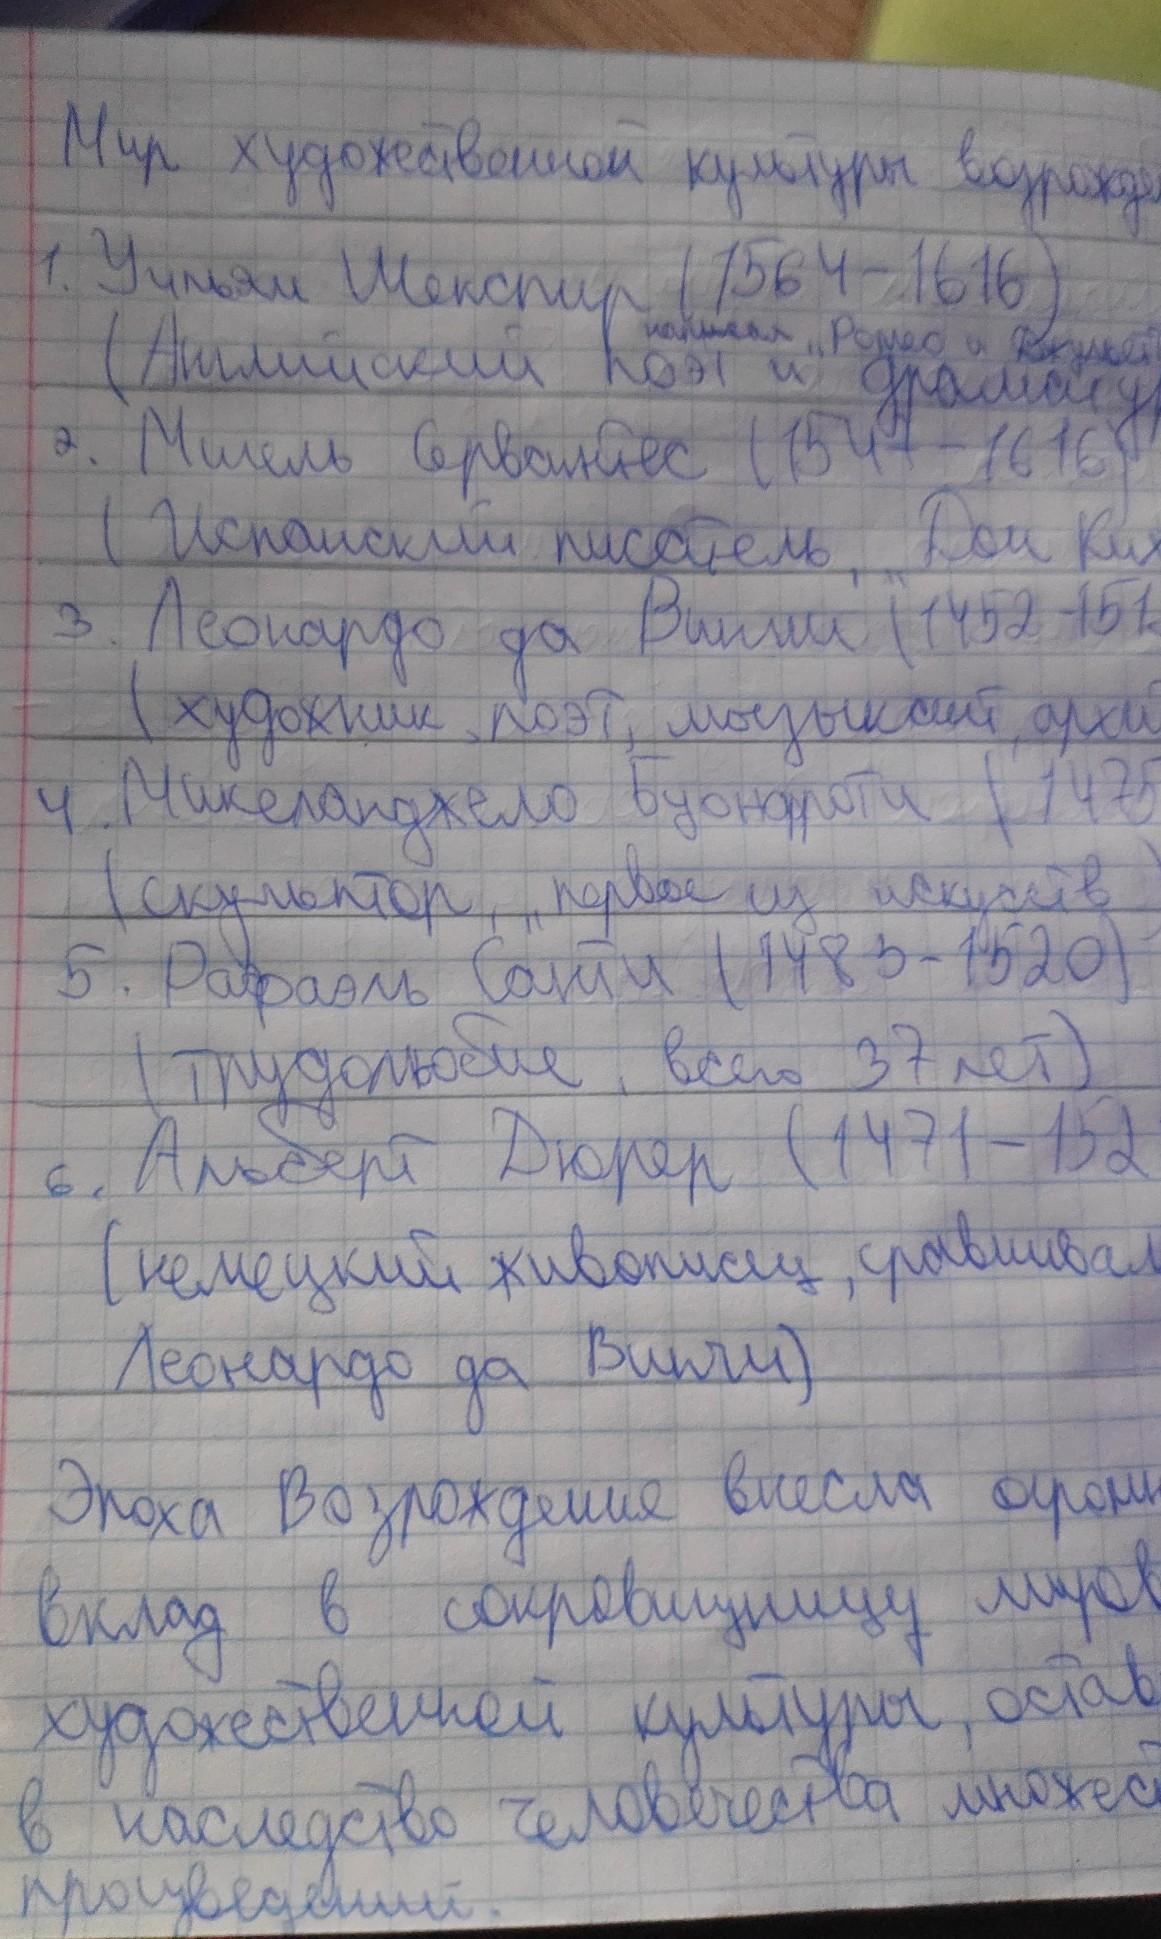 Мир художественной культуры возрожде
1. Уильям Шекспир (1564-1616)
написал „Ромео и Джульет
(Английский поэт и драматур
2. Мигель Сервантес (1547-1616)
(Испанский писатель, „Дон Ких
3. Леонардо да Винчи (1452-151
(художник, поэт, музыкант, архи
4. Микеланджело Буонарроти (1475
(скульптор, „первое из искусств)
5. Рафаэль Санти (1483-1520)
(трудолюбие, всего 37 лет)
6. Альберт Дюрер (1471-152
(немецкий живописец, сравнивал
Леонардо да Винчи)
Эпоха Возрождения внесла огромн
вклад в сокровищницу миров
художественной культуры, остав
в наследство человечества множест
произведений.